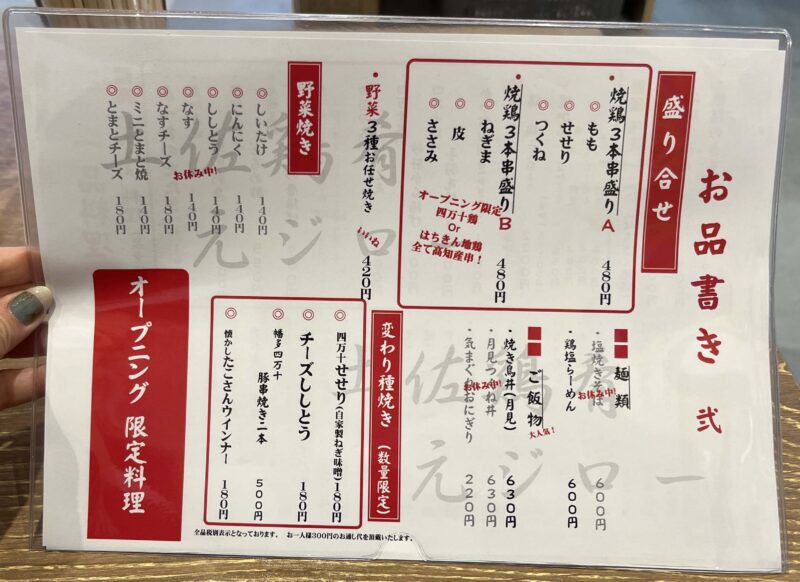 お品書き 弐
盛り合せ
・焼鶏3本串盛り A 480円
◎もも
◎せせり
◎つくね
・焼鶏3本串盛り B 480円
◎ねぎま
◎皮
◎ささみ
オープニング限定
四万十鶏
Or
はちきん地鶏
全て高知産串!
・野菜3種お任せ焼き いいね 420円
野菜焼き
◎しいたけ 140円
◎にんにく 140円
◎ししとう 140円
◎なす お休み中! 140円
◎なすチーズ 180円
◎ミニとまと焼 140円
◎とまとチーズ 180円
麺類
・塩焼きそば お休み中! 600円
・鶏塩らーめん 600円
ご飯物
・焼き鳥丼(月見) 大人気! 630円
・月見つくね丼 630円
お休み中!
・気まぐれおにぎり 220円
変わり種焼き (数量限定)
◎四万十せせり(自家製ねぎ味噌) 180円
◎チーズししとう 180円
◎幡多四万十
豚串焼き二本 500円
◎懐かしたこさんウインナー 180円
オープニング 限定料理
全品税別表示となっております。 お一人様300円のお通し代を頂戴いたします。
土佐鶏肴
元ジロー
土佐鶏肴
元ジロー